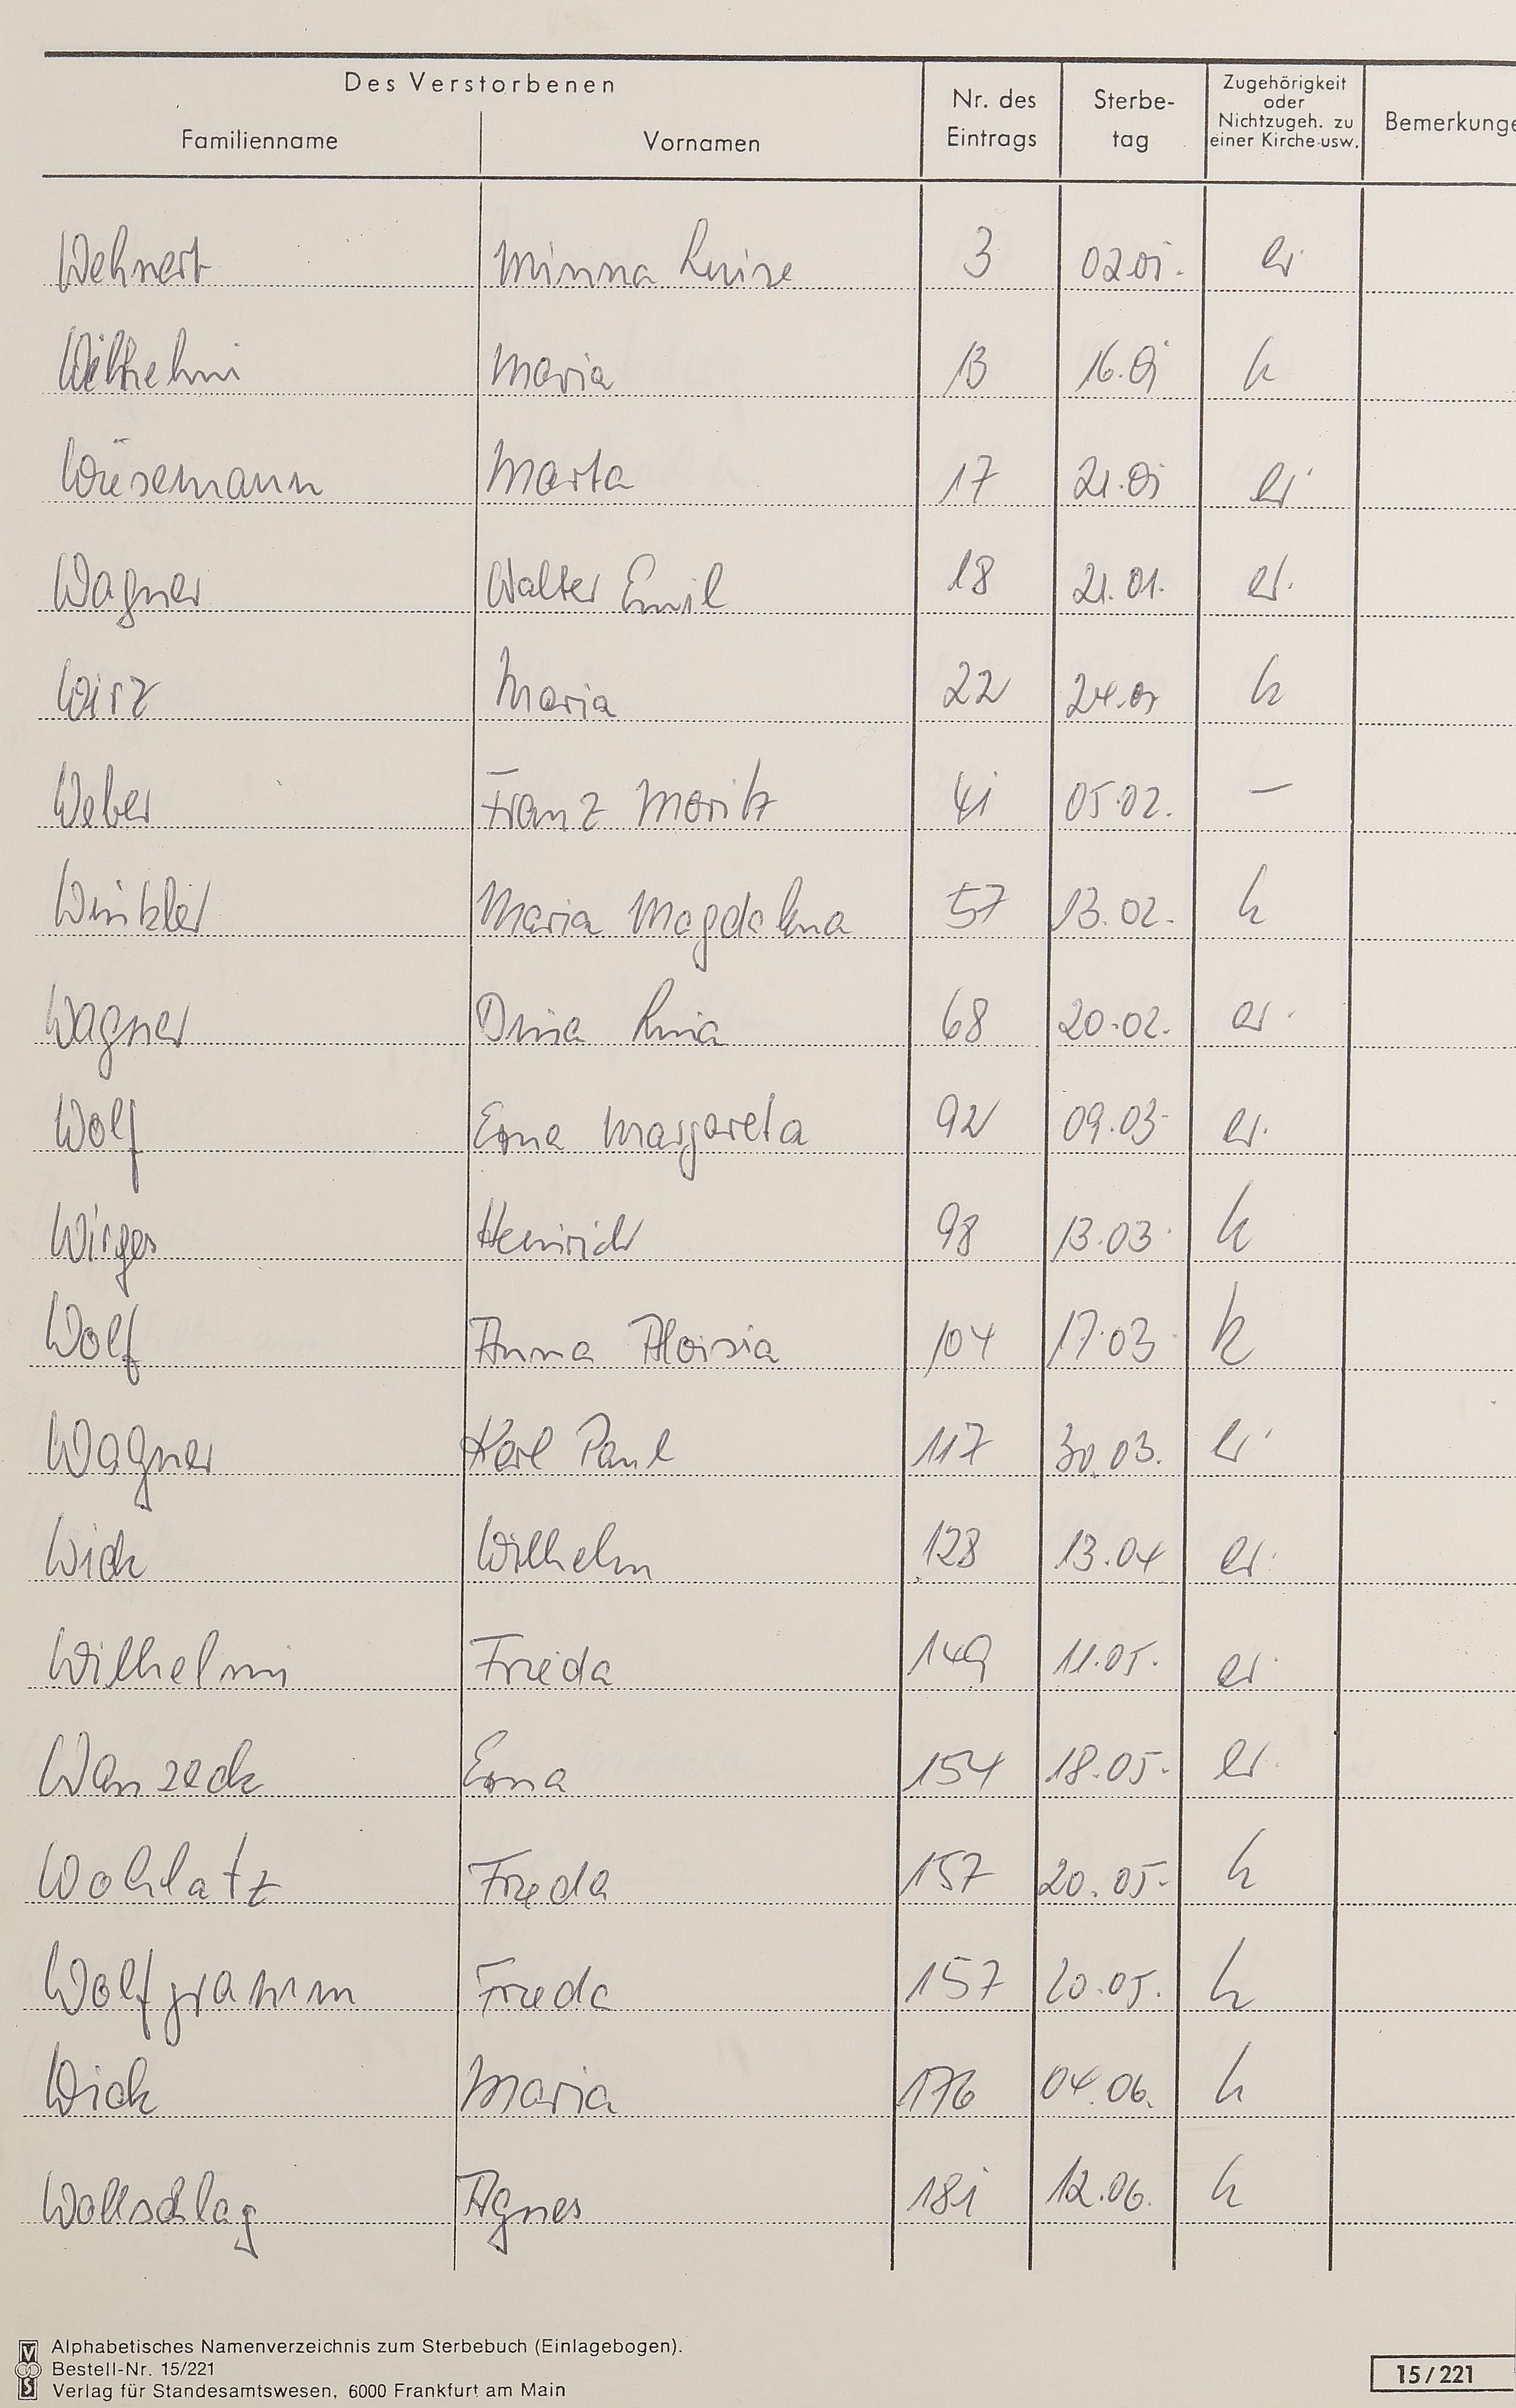 Des Verstorbenen
Familienname Vornamen Nr. des Eintrags Sterbe-tag Zugehörigkeit oder Nichtzugeh. zu einer Kirche usw. Bemerkunge
Wehnert Minna Luise 3 02.01. ev.
Wilhelmi Maria 13 16.01 k
Wüsemann Marta 17 21.01 ev.
Wagner Walter Emil 18 21.01. ev.
Wirz Maria 22 24.01 k
Weber Franz Moritz 41 05.02. —
Winkler Maria Magdalena 57 13.02. k
Wagner Dina Lina 68 20.02. ev.
Wolf Erna Margareta 92 09.03. ev.
Wirges Heinrich 98 13.03. k
Wolf Anna Aloisia 104 17.03. k
Wagner Karl Paul 117 30.03. ev.
Wick Wilhelm 128 13.04 ev.
Wilhelmi Frieda 149 11.05. ev.
Wanzeck Erna 154 18.05. ev.
Wohlatz Frieda 157 20.05. k
Wolfgramm Frieda 157 20.05. k
Wick Maria 176 04.06. k
Wollschlag Agnes 181 12.06. k
Alphabetisches Namenverzeichnis zum Sterbebuch (Einlagebogen).
Bestell-Nr. 15/221
Verlag für Standesamtswesen, 6000 Frankfurt am Main
15/221